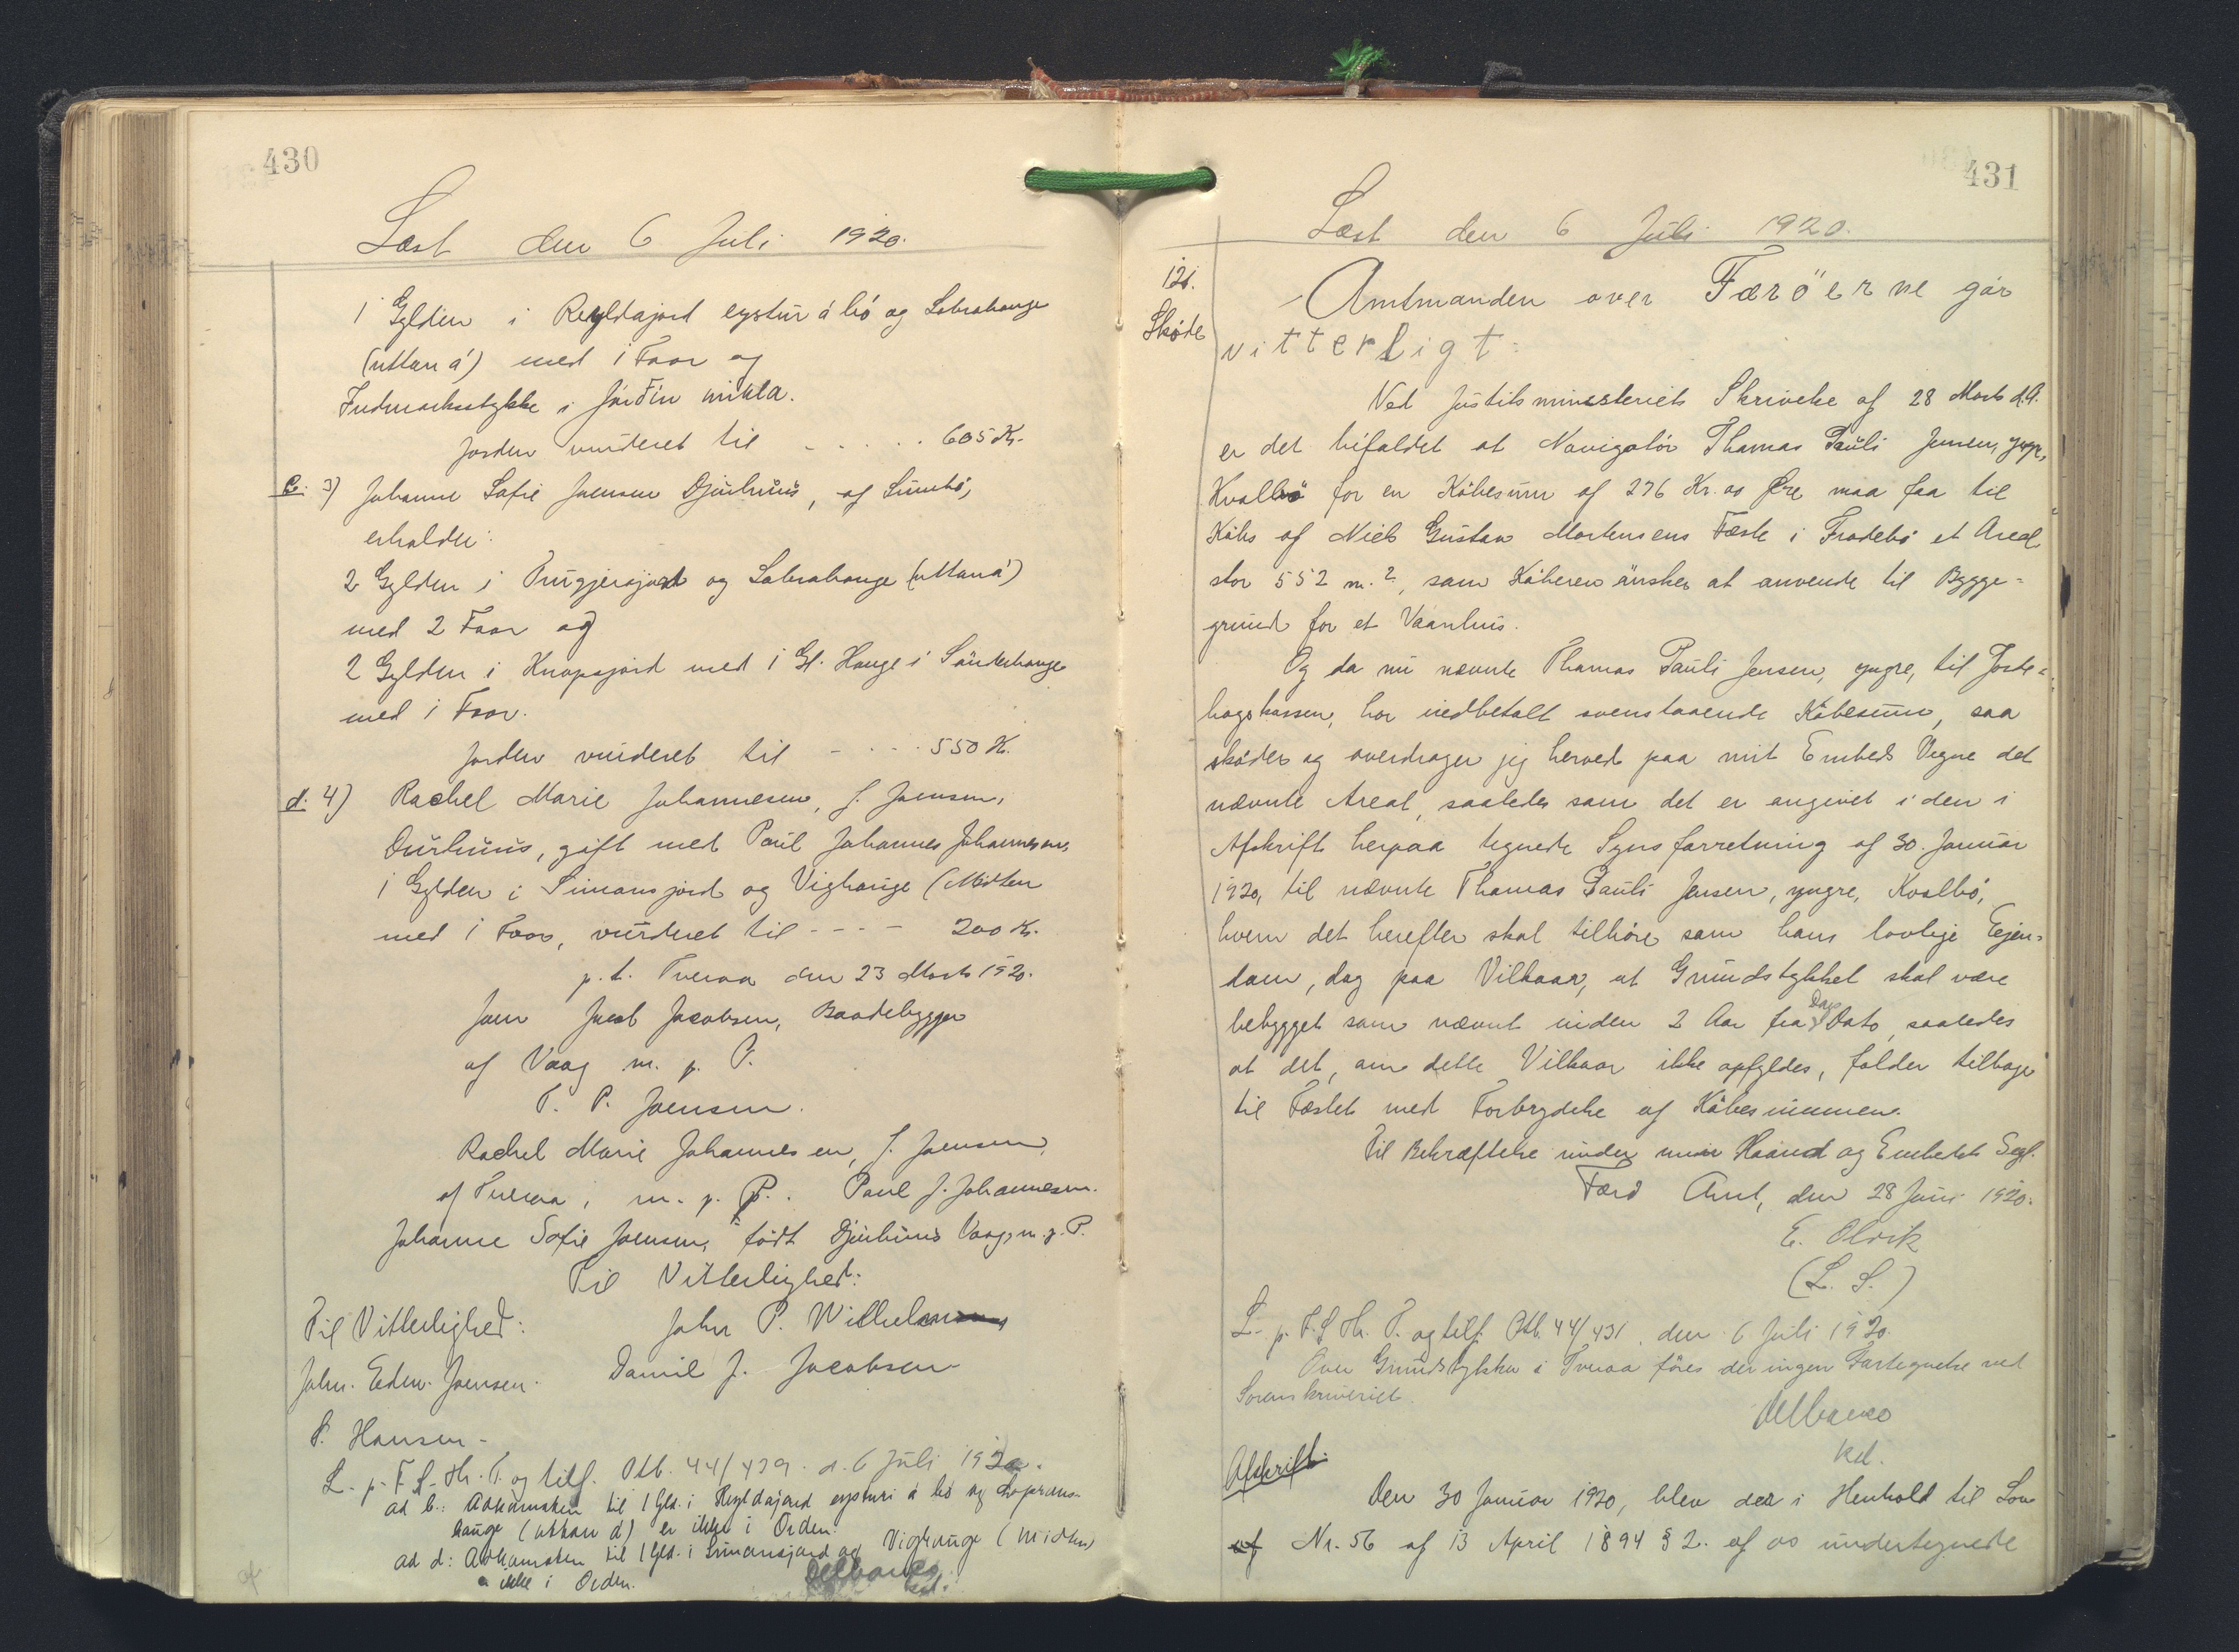 430
Læst den 6 Juli 1920.
1 Gylden i Regldajord eystur á bó og Labrahauge
(uttan á) med 1 Faar og
Indmarksstykke i Jørdin mikla.
Jorden vurderet til - . . . . 605 Kr.
c. 3) Johanne Sofie Joensen Djurhuus, af Sumbø,
erholder:
2 Gylden i Trugjersjord og Labrahauge (uttaná)
med 2 Faar og
2 Gylden i Knapsjord med 1 Gl. Hauge i Sönderhauge
med 1 Faar.
Jorden vurderet til - . . . 550 K.
d. 4) Rachel Marie Johannesen, f. Joensen,
Ourhuus, gift med Poul Johannes Johannesen,
1 Gylden i Simansjord og Vighauge (Midten
med 1 Faar, vurderet til - - - - 200 Kr.
p. t. Tveraa den 23 Marts 1920.
Joen Jacob Jacobsen, Baadebygger
af Vaag m. p. P.
T. P. Joensen.
Rachel Marie Johannesen, f. Joensen,
af Tveraa, m. p. P. Poul J. Johannesen.
Johanne Sofie Joensen, født Djurhuus Vaag, m. p. P.
Til Vitterlighed:
Til Vitterlighed: John P. Wilhelmsen
Johs. Edm. Joensen. Daniel J. Jacobsen
P. Hansen -
L. p. F. S. Hr. T. og tilf. Ptb. 44/429. d. 6 Juli 1920.
ad b.: Adkomsten til 1 Gld. i Regldajord eysturi á bó og Loprans-
hauge (uttan á) er ikke i Orden.
ad d: Adkomsten til 1 Gld. i Simansjord og Vighauge (Midten)
er ikke i Orden.
Delbanco
kst.
431
Læst den 6 Juli 1920.
121.
Skøde
Amtmanden over Færöerne gør
vitterligt:
Ved Justitsministeriets Skrivelse af 28 Marts d.A.
er det bifaldet at Navigatör Thomas Pauli Jensen, yngr,
Kvalbö for en Köbesum af 276 Kr. 00 Øre maa faa til
Köbs af Niels Gustav Mortensens Fæste i Frodebö et Areal
stor 552 m.², som Köberen önsker at anvende til Bygge=
grund for et Vaanhus.
Og da nu nævnte Thomas Pauli Jensen, yngre, til Jorde=
bogskassen, har indbetalt ovenstaaende Köbesum, saa
skøder og overdrager jeg herved paa mit Embeds Vegne det
nævnte Areal, saaledes som det er angivet i den i
Afskrift herpaa tegnede Synsforretning af 30. Januar
1920, til nævnte Thomas Pauli Jensen, yngre, Kvalbö,
hvem det herefter skal tilhøre som hans lovlige Ejen=
dom, dog paa Vilkaar, at Grundstykket skal være
bebygget som nævnt inden 2 Aar fra Dags Dato saaledes
at det, om dette Vilkaar ikke opfyldes, falder tilbage
til Fæstet med Forbrydelse af Köbesummen.
Til Bekræftelse under min Haand og Embeds Segl.
Færö Amt, den 28 Juni 1920.
E. Olrik
(L. S.)
L. p. F. S Hr. T. og tilf. Ptb. 44/431, den 6 Juli 1920.
Over Grundstykker i Tveraa föres der ingen Fortegnelse ved
Sorenskriveriet.
Delbanco
kst.
Afskrift.
Den 30 Januar 1920, blev der i Henhold til Lov
af Nr. 56 af 13 April 1894 § 2. af os undertegnede